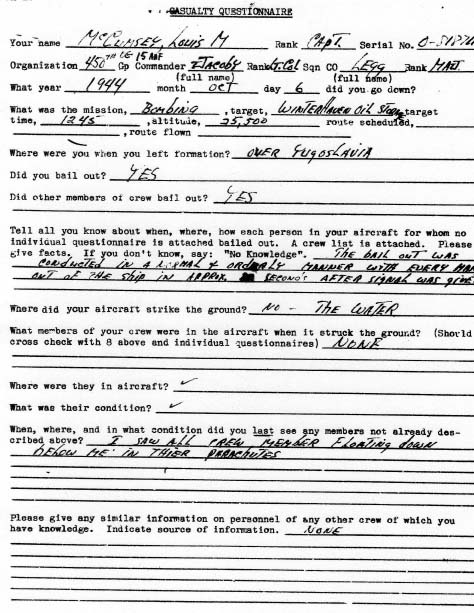 CASUALTY QUESTIONNAIRE
Your name McCumsey, Louis M Rank CAPT. Serial No.
Organization 450TH 15 AAF Gp Commander Jacoby Rank Lt.Col Sqn CO LEGG Rank MAJ
(full name) (full name)
What year 1944 month OCT day 6 did you go down?
What was the mission, Bombing, target, WINTERHAVEN OIL STORG, target
time, 1245, altitude, 25,500 route scheduled,
, route flown
Where were you when you left formation? OVER YUGOSLAVIA
Did you bail out? YES
Did other members of crew bail out? YES
Tell all you know about when, where, how each person in your aircraft for whom no
individual questionnaire is attached bailed out. A crew list is attached. Please
give facts. If you don't know, say: "No Knowledge". THE BAIL OUT WAS
CONDUCTED IN A NORMAL & ORDERLY MANNER WITH EVERY MAN
OUT OF THE SHIP IN APPROX. SECONDS AFTER SIGNAL WAS GIVE
Where did your aircraft strike the ground? NO - THE WATER
What members of your crew were in the aircraft when it struck the ground? (Should
cross check with 8 above and individual questionnaires) NONE
Where were they in aircraft? ✓
What was their condition? ✓
When, where, and in what condition did you last see any members not already des-
cribed above? I SAW ALL CREW MEMBER FLOATING DOWN
BELOW ME IN THIER PARACHUTES
Please give any similar information on personnel of any other crew of which you
have knowledge. Indicate source of information. NONE